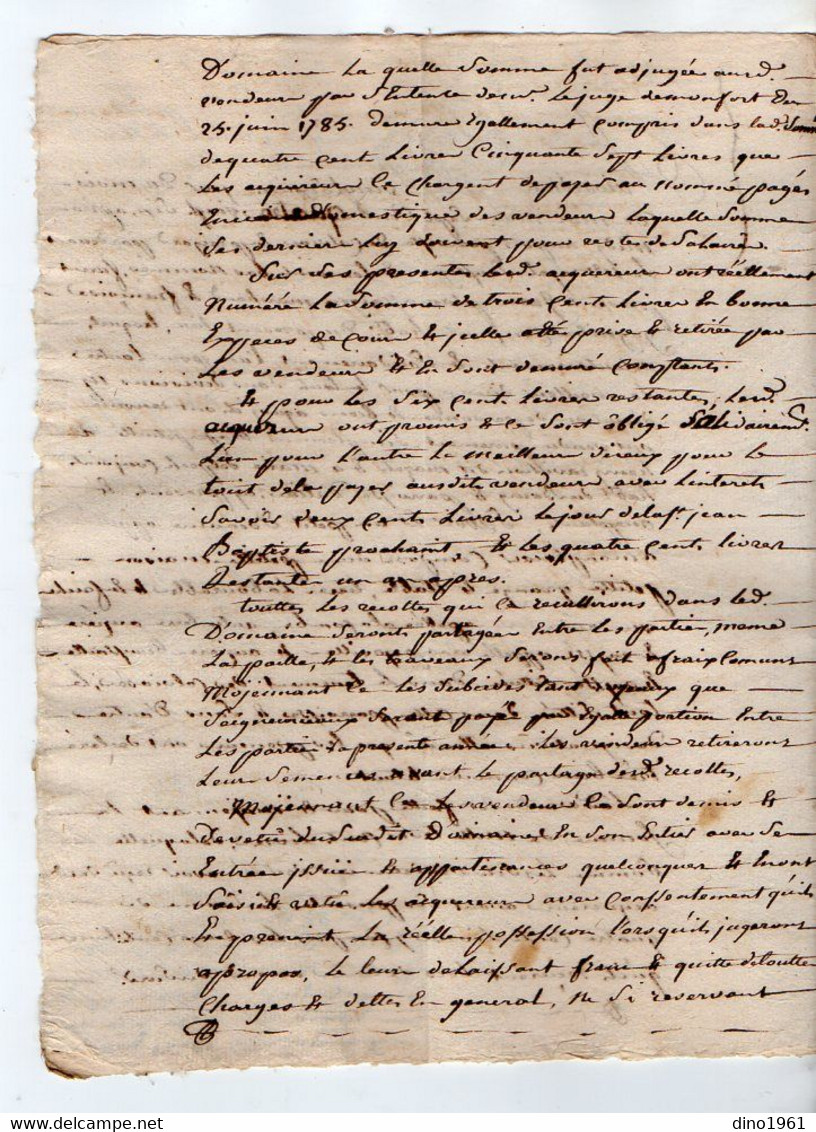 Domaine la quelle Somme fut adjugée aud.
vendeur par Sentente de mr. le juge de monfort du
25. juin 1785. demure Egallement compris dans lad. Somme
de quatre cent Livres Cinquante Sept Livres que
les acquireur Ce Chargent de payer au nommé pagés
domestique des vendeur Laquelle Somme
Ses dernier luy doivent pour restes de Salaires
Sur Ses presentes led. acquereur ont réellement
Numéré La Somme de trois Cents livres En bonne
Expeces de cour & jcelle été prise & retirée par
Les vendeur & En Sont demuré Constants.
& pour les Six Cents livres restantes, led.
acquereur ont promis & Ce Sont obligé Sollidairemt.
L'un pour l'autre le meilleur d'ieux pour le
tout de la payer ausdits vendeur avec linterets
Savoir deux Cents livres le jour de la St. jean
Baptiste prochaint, & les quatre Cents livres
Restantes un an apres.
touttes les recoltes qui Ce recullirons dans led.
Domaine Seronts partagées Entre les partie, meme
La paille, & les travaux Serons fait a fraix Comuns
Mojennant Ce les Subcides tant Royaux que
Seigneuriaux Seront payé par Egalle portion Entre
Les partie La presente année, Les vendeur retireront
Leur Semences avant le partage desd. recoltes,
Mojennant Ce Les vendeur Ce Sont demis &
Devetus du Susdit Domaines En Son Entier avec Ses
Entrée jssüe & appartenances quelconques & En ont
Saisi & vetu les acquereur avec Conssentement qu'ils
En prenent La réelle possession lorsqu'ils jugeront
apropos, le leur delaissant franc & quitte de toutte
Charges & dettes En general, ne Si reservant
dino1961